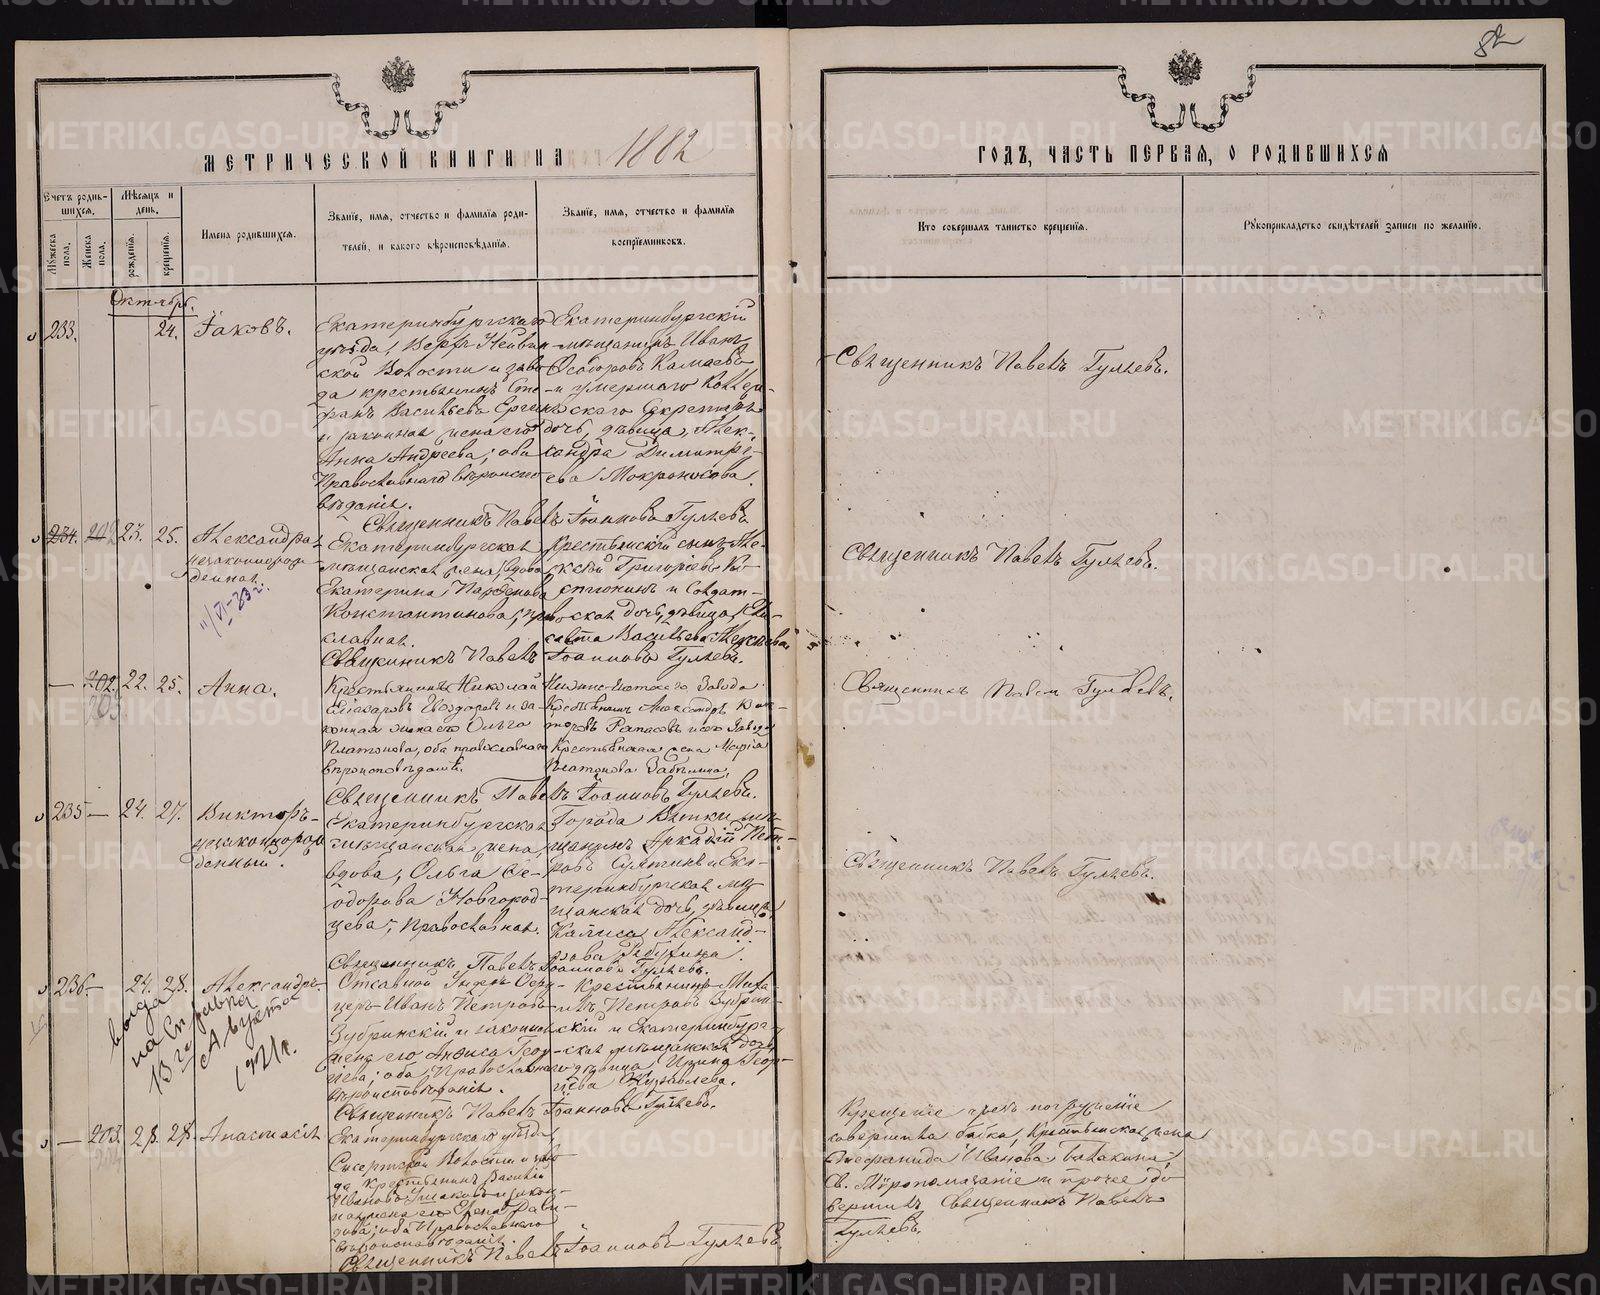 82
МЕТРИЧЕСКОЙ КНИГИ НА 1882
ГОДЪ, ЧАСТЬ ПЕРВАЯ, О РОДИВШИХСЯ
Счетъ родив-
шихся.
Мужеска
пола.
Женска
пола.
Мѣсяцъ и
день.
рожденія.
крещенія.
Имена родившихся.
Званіе, имя, отчество и фамилія роди-
телей, и какого вѣроисповѣданія.
Званіе, имя, отчество и фамилія
воспріемниковъ.
Кто совершалъ таинство крещенія.
Рукоприкладство свидѣтелей записи по желанію.
Октябрь.
233. 24. Іаковъ.
Екатеринбургскаго
уѣзда, Верхъ Нейвин-
ской Волости и заво-
да крестьянинъ Сте-
фанъ Васильевъ
и законная жена его
Анна Андреева; оба
Православнаго вѣроиспо-
вѣданія.
Екатеринбургскій
мѣщанинъ Иванъ
Ѳеодоровъ Камаевъ
и умершаго Коллеж-
скаго Секретаря
дочь, дѣвица, Алек-
сандра Димитрі-
ева Мокроносова.
Священникъ Павелъ Гуляевъ.
Священникъ Павелъ Іоанновъ Гуляевъ
234. 202 23. 25. Александра
незаконнорож-
денная.
11/VI-83 г.
Екатеринбургская
мѣщанская жена, вдова
Екатерина Парѳенова
Константинова, право-
славная.
Крестьянскій сынъ Але-
ксѣй Григорьевъ
и Солдат-
ская дочь, дѣвица, Ели-
савета Васильева Алексѣева
Священникъ Павелъ Гуляевъ.
Священникъ Павелъ Іоанновъ Гуляевъ.
— 202. 22. 25. Анна.
203
Крестьянинъ Николай
и за-
конная жена его Ольга
Платонова, оба православнаго
вѣроисповѣданія.
Завода
Крестьянинъ Александръ Вик-
торовъ и того Завода
Крестьянская жена Марія
Платонова
Священникъ Павелъ Гуляевъ.
Священникъ Павелъ Іоанновъ Гуляевъ.
235 — 24. 27. Викторъ-
незаконнорож-
денный.
Екатеринбургская
мѣщанская жена,
вдова, Ольга Ѳе-
одорова Новгород-
цева, Православная.
Города Вятки мѣ-
щанинъ Аркадій Пет-
ровъ и Ека-
теринбургская мѣ-
щанская дочь, дѣвица,
Александ-
рова
Священникъ Павелъ Гуляевъ.
Священникъ Павелъ Іоанновъ Гуляевъ.
236 — 24. 28. Александръ.
выдана
справка
13 Августа
1921 г.
Отставной Унтеръ-Офи-
церъ Иванъ Петровъ
Зубринскій и законная
жена его Анфиса Геор-
гіева; оба Православнаго
вѣроисповѣданія.
Крестьянинъ Миха-
илъ Петровъ Зубрин-
скій и Екатеринбург-
ская мѣщанская дочь
дѣвица Ирина Геор-
гіева Журавлева.
Священникъ Павелъ Іоанновъ Гуляевъ.
— 203. 28. 28. Анастасія
204
Екатеринбургскаго уѣзда,
Сысертской Волости и заво-
да крестьянинъ Василій
Ивановъ Ушаковъ и закон-
ная жена его Дави-
дова; оба Православнаго
вѣроисповѣданія.
Крещеніе чрезъ погруженіе
совершила бабка, Крестьянская жена
Стефанида Иванова
Св. Мѵропомазаніе и прочее до-
вершилъ Священникъ Павелъ
Гуляевъ.
Священникъ Павелъ Іоанновъ Гуляевъ.
METRIKI.GASO-URAL.RU